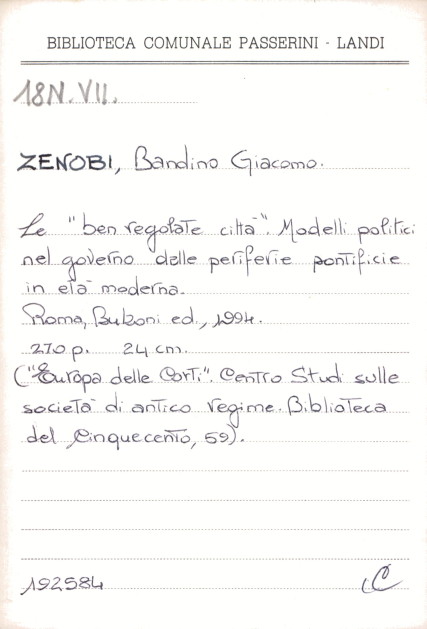 BIBLIOTECA COMUNALE PASSERINI - LANDI
18N.VII.
ZENOBI, Bandino Giacomo.
Le "ben regolate città". Modelli politici
nel governo delle periferie pontificie
in età moderna.
Roma, Bulzoni ed., 1994.
270 p. 24 cm.
("Europa delle Corti". Centro Studi sulle
società di antico regime. Biblioteca
del Cinquecento, 59).
192584